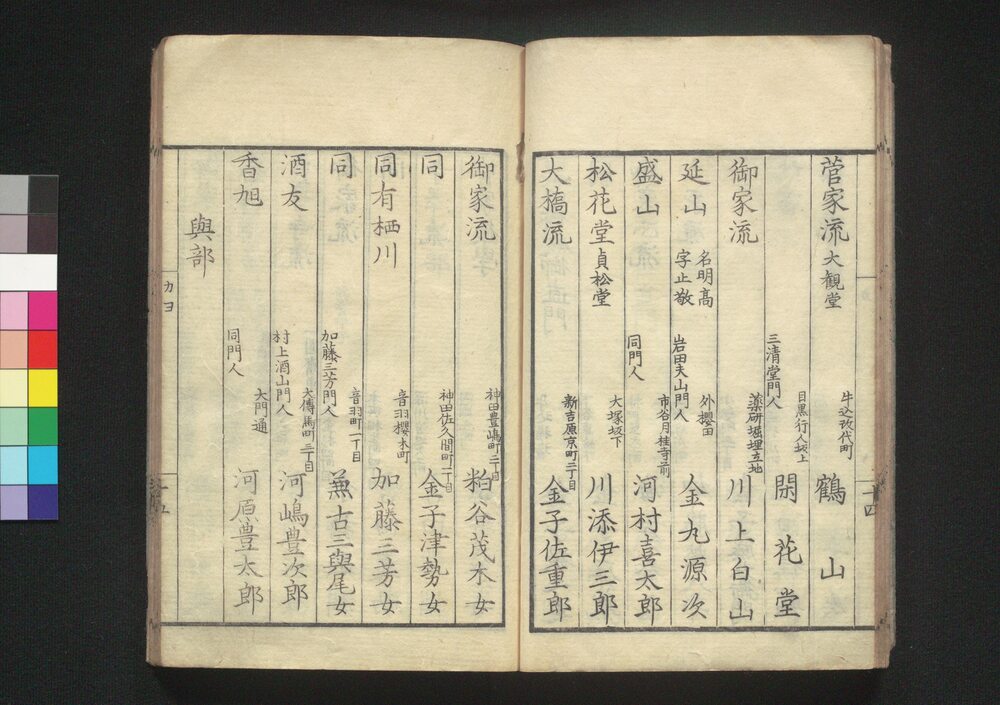 菅家流 大観堂 牛込改代町 鶴山
目黒行人坂上 閑花堂
御家流 三清堂門人 薬研堀埋立地 川上白山
延山 名明高 字止敬 岩田夫山門人 外櫻田 金丸源次
盛山 同門人 市谷月桂寺前 河村喜太郎
松花堂 貞松堂 大塚坂下 川添伊三郎
大橋流 新吉原京町二丁目 金子佐重郎
十四
御家流 神田豊嶋町二丁目 粕谷茂木女
同 神田佐久間町二丁目 金子津勢女
同 有栖川 音羽櫻木町 加藤三芳女
同 加藤三芳門人 音羽町一丁目 無古三與尾女
酒友 村上酒山門人 大傳馬町二丁目 河嶋豊次郎
香旭 同門人 大門通 河原豊太郎
與部
カヨ
十五